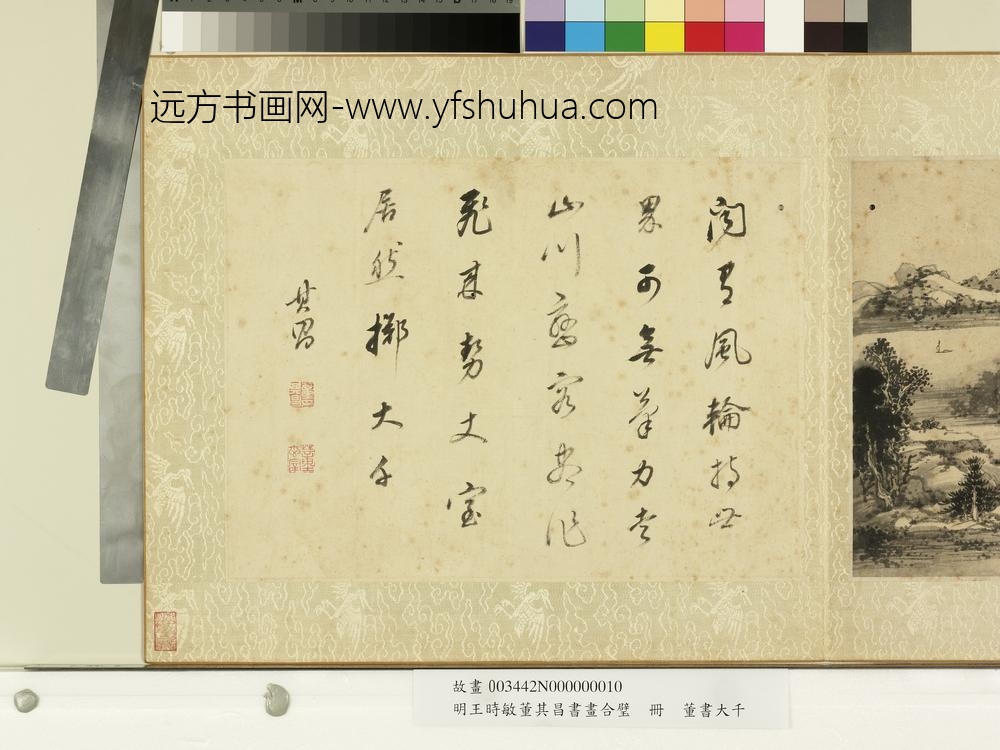 远方书画网-www.yfshuhua.com
闻有风輪持世
界可無筆力走
山川巒容盡作
飛来势丈室
居然擲大千
其昌
故畫 003442N000000010
明王時敏董其昌書畫合璧 冊 董書大千